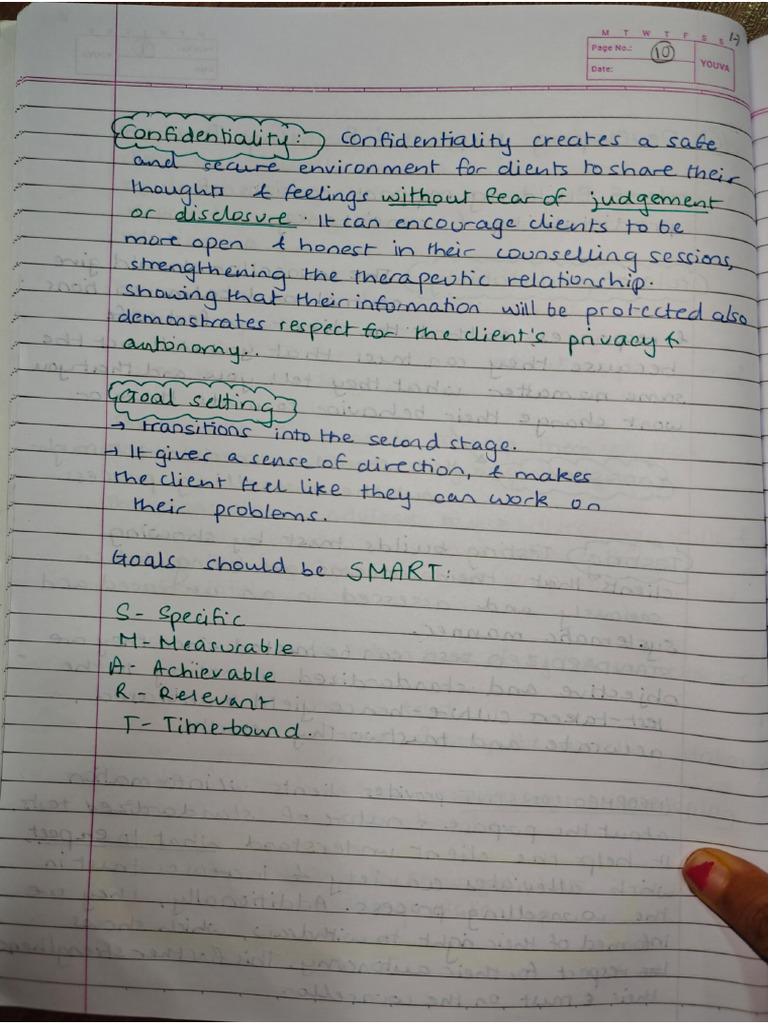 M T W T F S S
Page No.: 10
Date:
YOUVA
Confidentiality: Confidentiality creates a safe
and secure environment for clients to share their
thoughts & feelings without fear of judgement
or disclosure. It can encourage clients to be
more open & honest in their counselling sessions,
strengthening the therapeutic relationship.
Showing that their information will be protected also
demonstrates respect for the client's privacy &
autonomy..
Goal setting
→ Transitions into the second stage.
→ It gives a sense of direction, & makes
the client feel like they can work on
their problems.
Goals should be SMART:
S- Specific
M- Measurable
A- Achievable
R- Relevant
T- Time-bound.